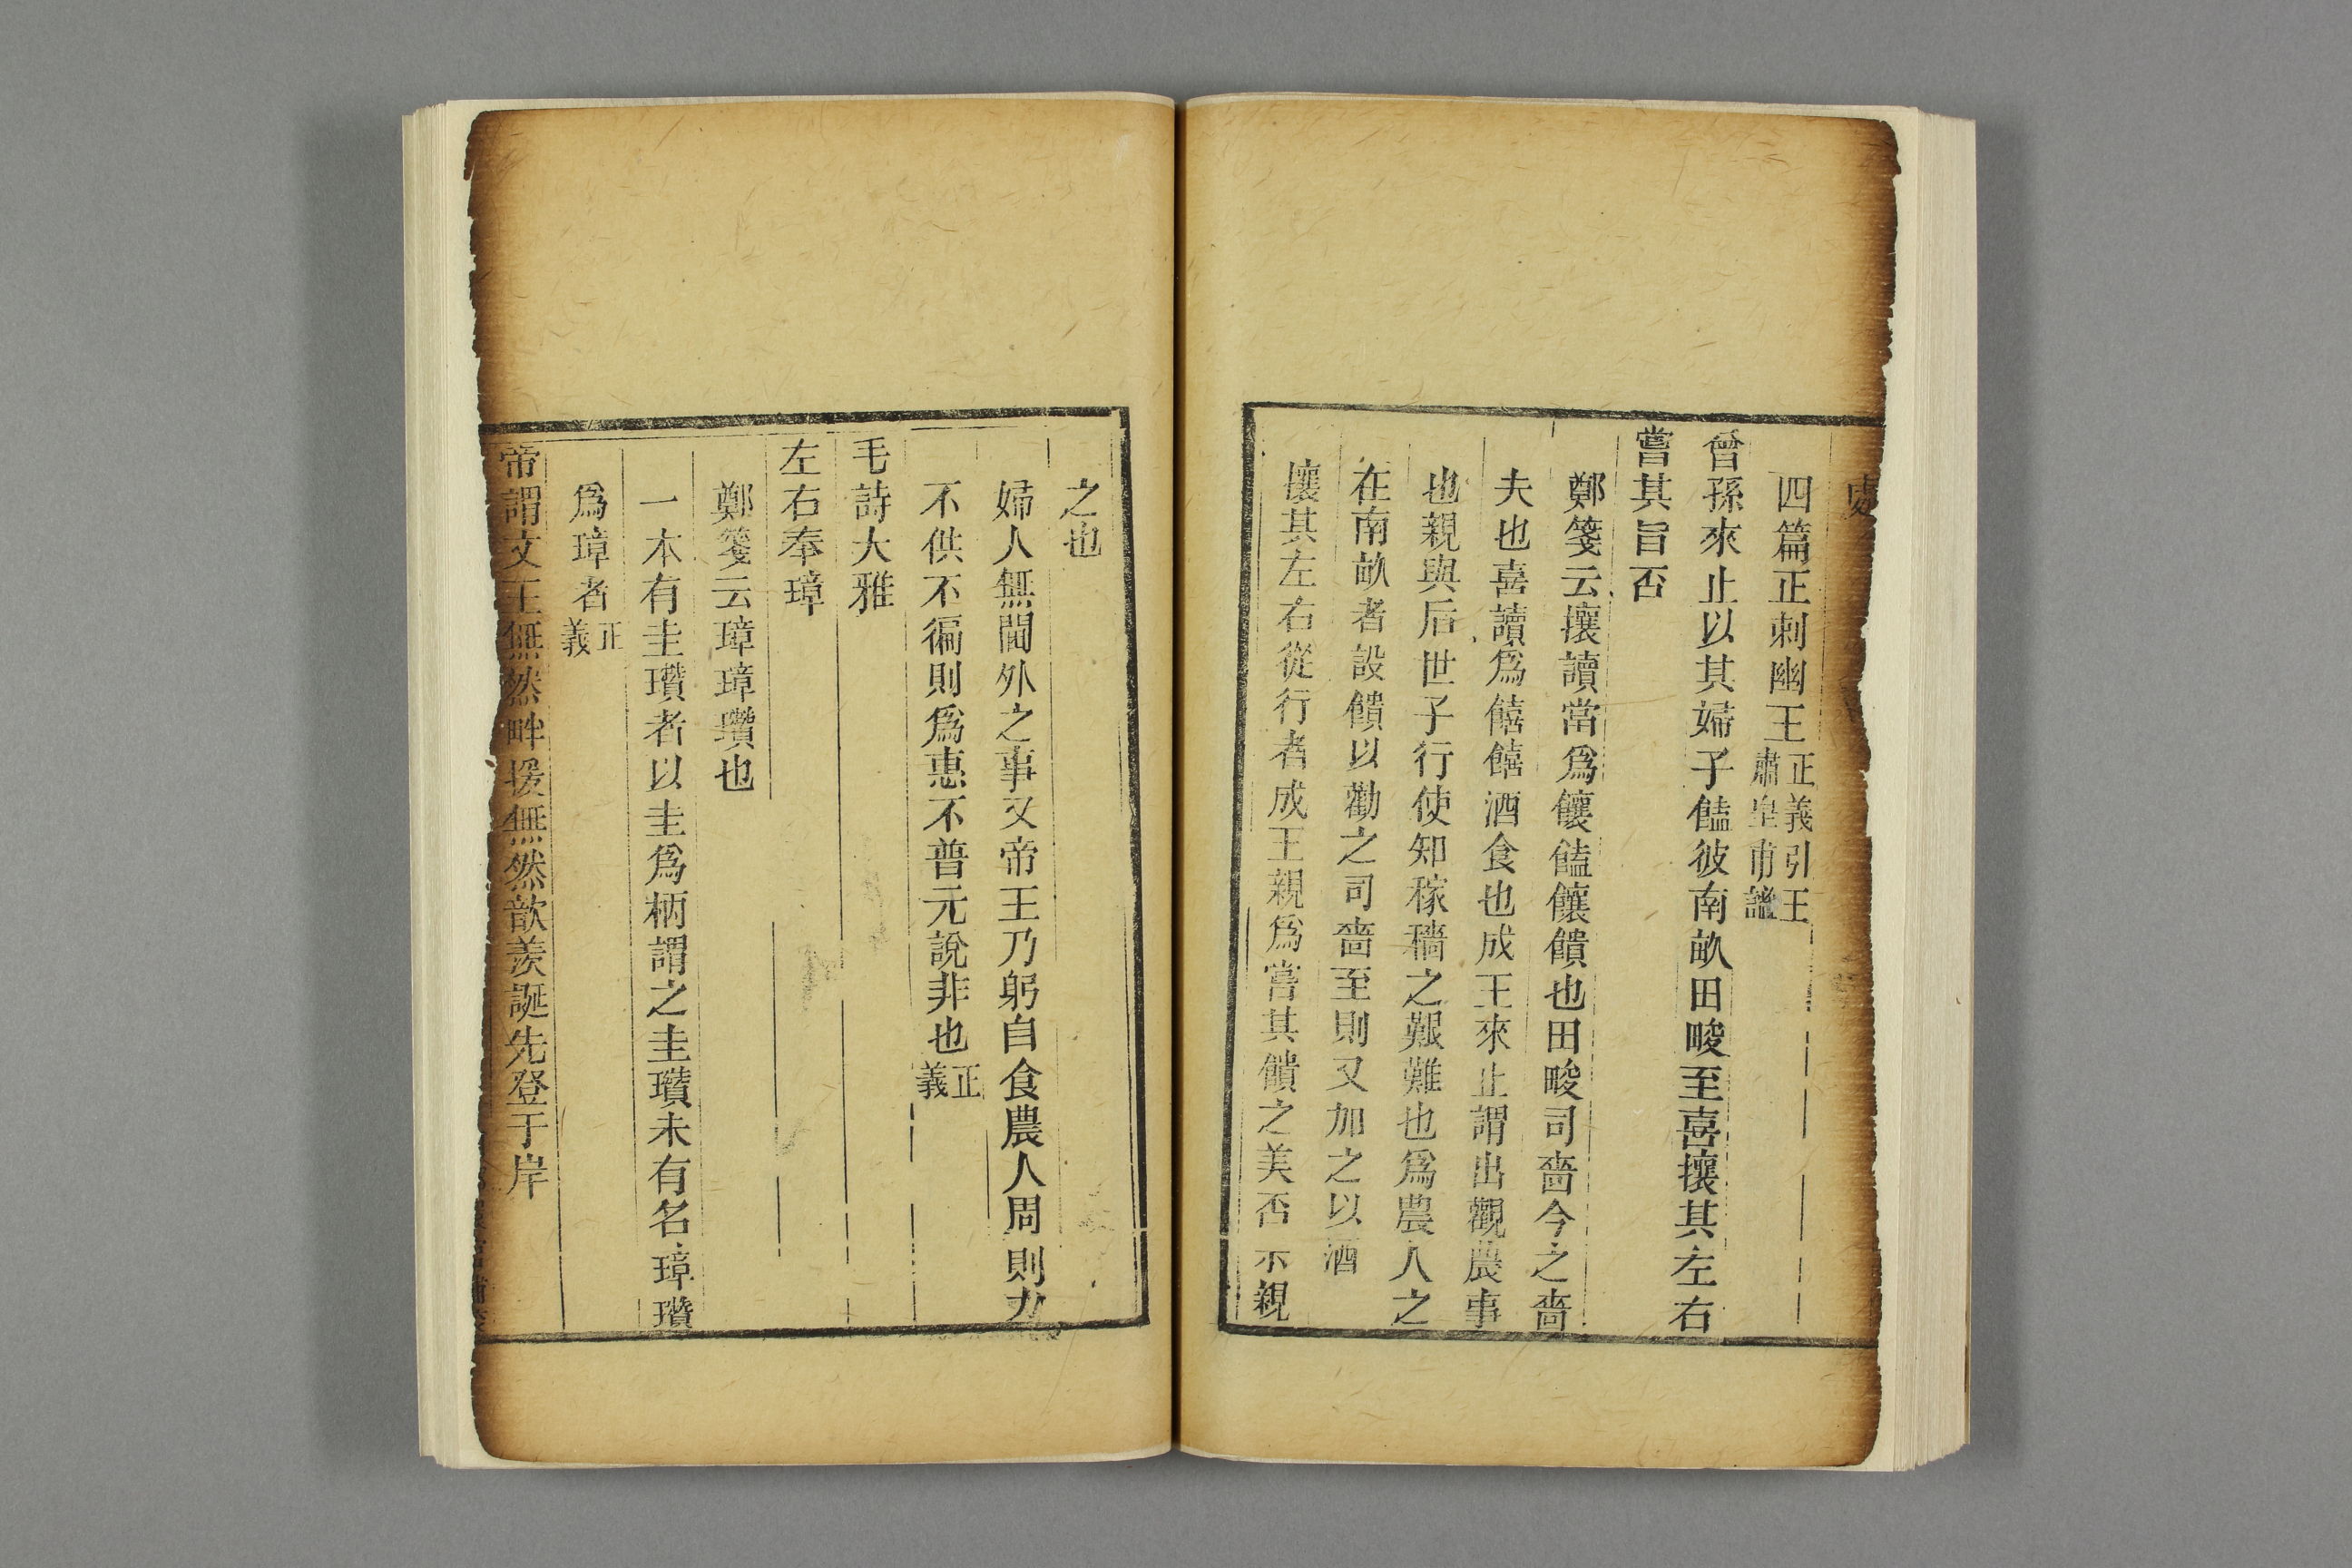 處
四篇正刺幽王正義引王肅皇甫謐
曾孫來止以其婦子饁彼南畝田畯至喜攘其左右
嘗其旨否
鄭箋云攘讀當爲饟饁饟饋也田畯司嗇今之嗇
夫也喜讀爲饎饎酒食也成王來止謂出觀農事
也親與后世子行使知稼穡之艱難也爲農人之
在南畝者設饋以勸之司嗇至則又加之以酒
攘其左右從行者成王親爲嘗其饋之美否示親
之也
婦人無閫外之事又帝王乃躬自食農人周則力
不供不徧則爲惠不普元說非也正義
毛詩大雅
左右奉璋
鄭箋云璋璋瓚也
一本有圭瓚者以圭爲柄謂之圭瓚未有名璋瓚
爲璋者正義
帝謂文王無然畔援無然歆羨誕先登于岸